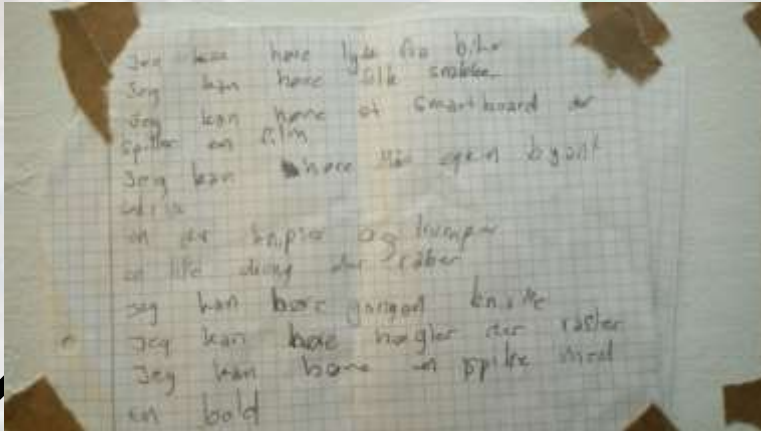 Jeg kan høre lyde fra biler
Jeg kan høre folk snakker
Jeg kan høre et Smartboard der
spiller en film
Jeg kan høre min egen
en der hopper og
en lille dreng der råber
Jeg kan høre
Jeg kan høre nøgler der rasler
Jeg kan høre en spille med
en bold